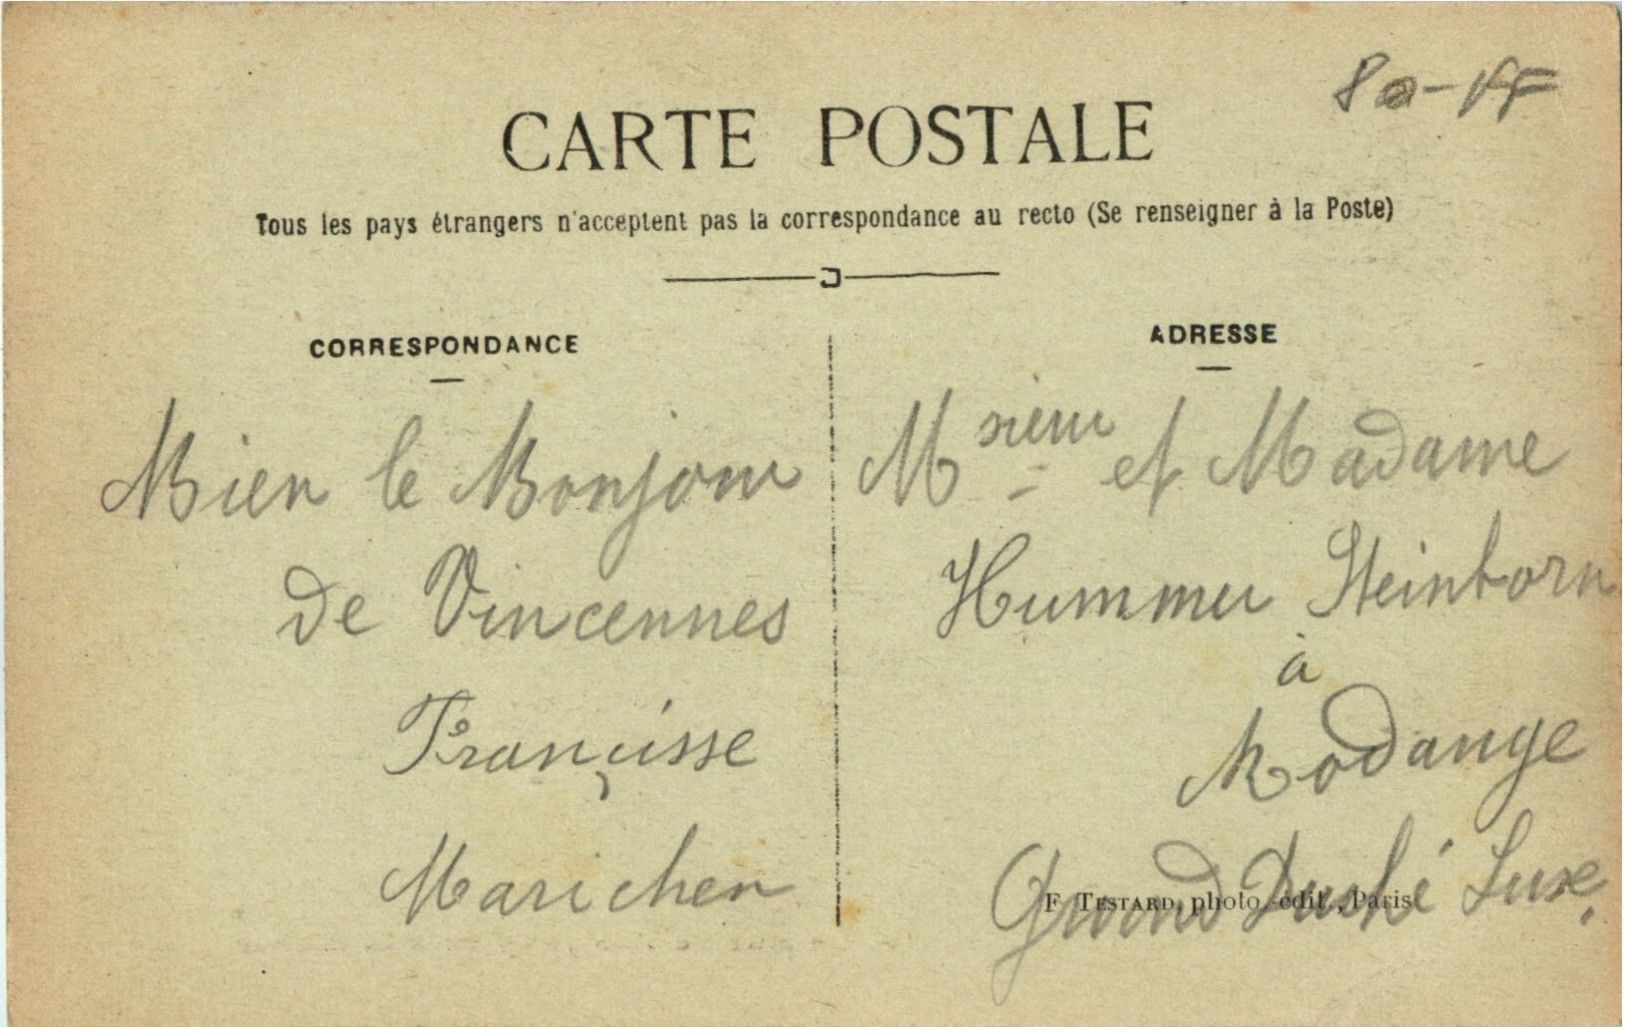 80-FF
CARTE POSTALE
Tous les pays étrangers n'acceptent pas la correspondance au recto (Se renseigner à la Poste)
CORRESPONDANCE
Mien le Monjour
de Vincennes
Françisse
Marichen
ADRESSE
Msieur et Madame
Hummer Steinborn
à
Rodange
Grand Duché Luxe.
F. TESTARD, photo. édit., Paris